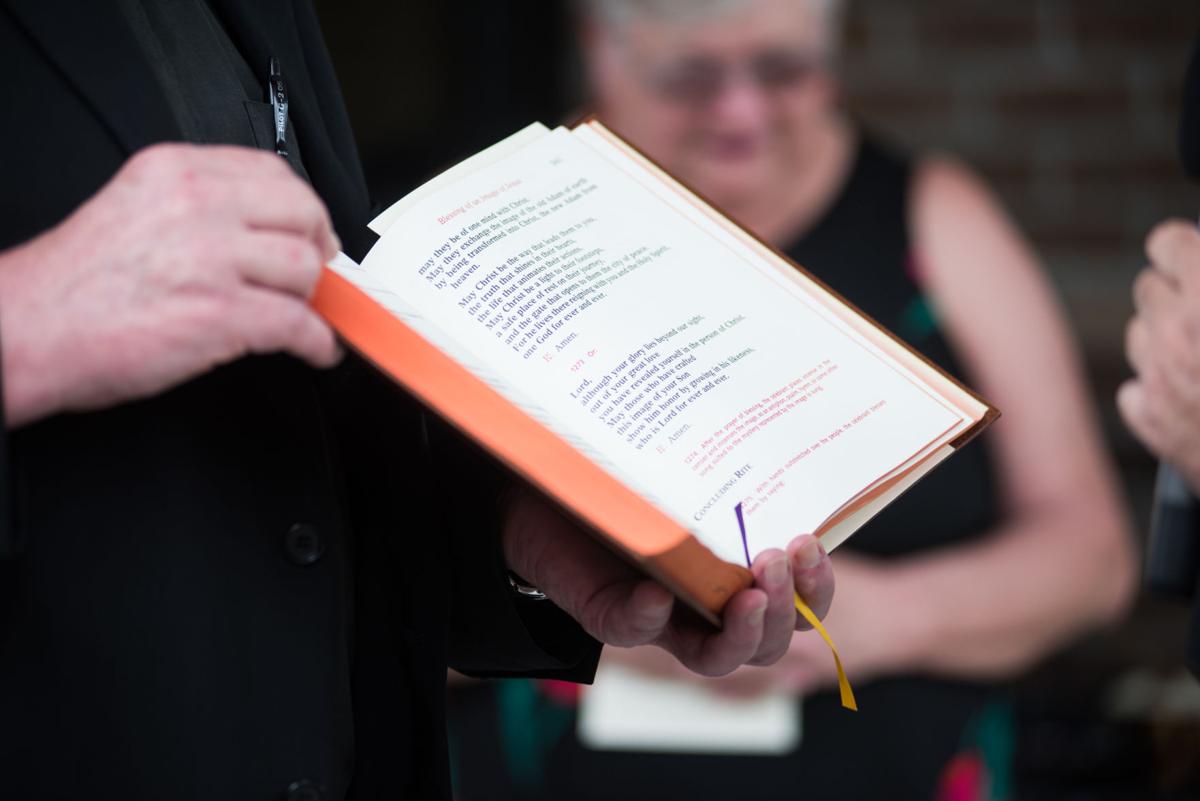 PILOT G-2
Blessing of an Image of Jesus
may they be of one mind with Christ.
May they exchange the image of the old Adam of earth
by being transformed into Christ, the new Adam from
heaven.
May Christ be the way that leads them to you,
the truth that shines in their hearts,
the life that animates their actions.
May Christ be a light to their footsteps,
a safe place of rest on their journey,
and the gate that opens to them the city of peace.
For he lives there reigning with you and the Holy Spirit,
one God for ever and ever.
℟. Amen.
1273 Or:
Lord,
although your glory lies beyond our sight,
out of your great love
you have revealed yourself in the person of Christ.
May those who have crafted
this image of your Son
show him honor by growing in his likeness,
who is Lord for ever and ever.
℟. Amen.
1274 After the prayer of blessing, the celebrant places incense in the
censer and incenses the image, as an antiphon, psalm, hymn, or some other
song suited to the mystery represented by the image is sung.
CONCLUDING RITE
1275 With hands outstretched over the people, the celebrant blesses
them by saying: